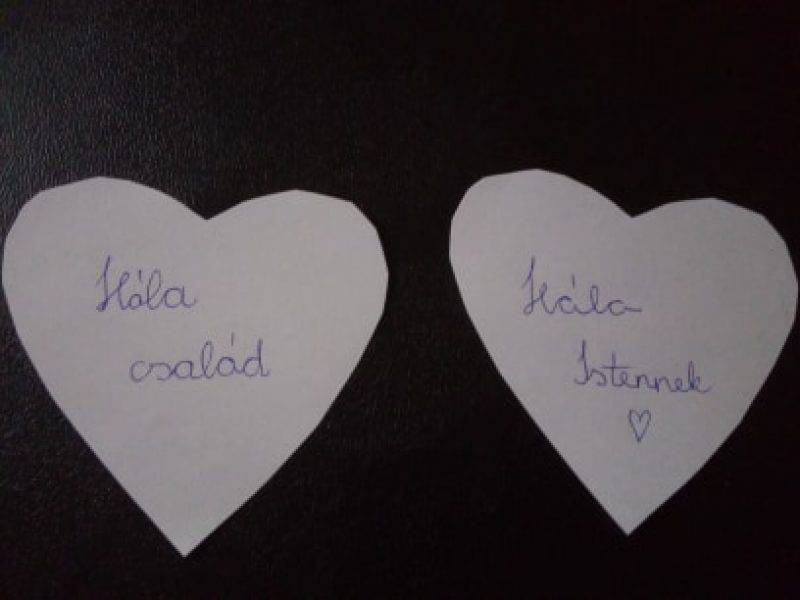 Hála
család
Hála
Istennek
♡